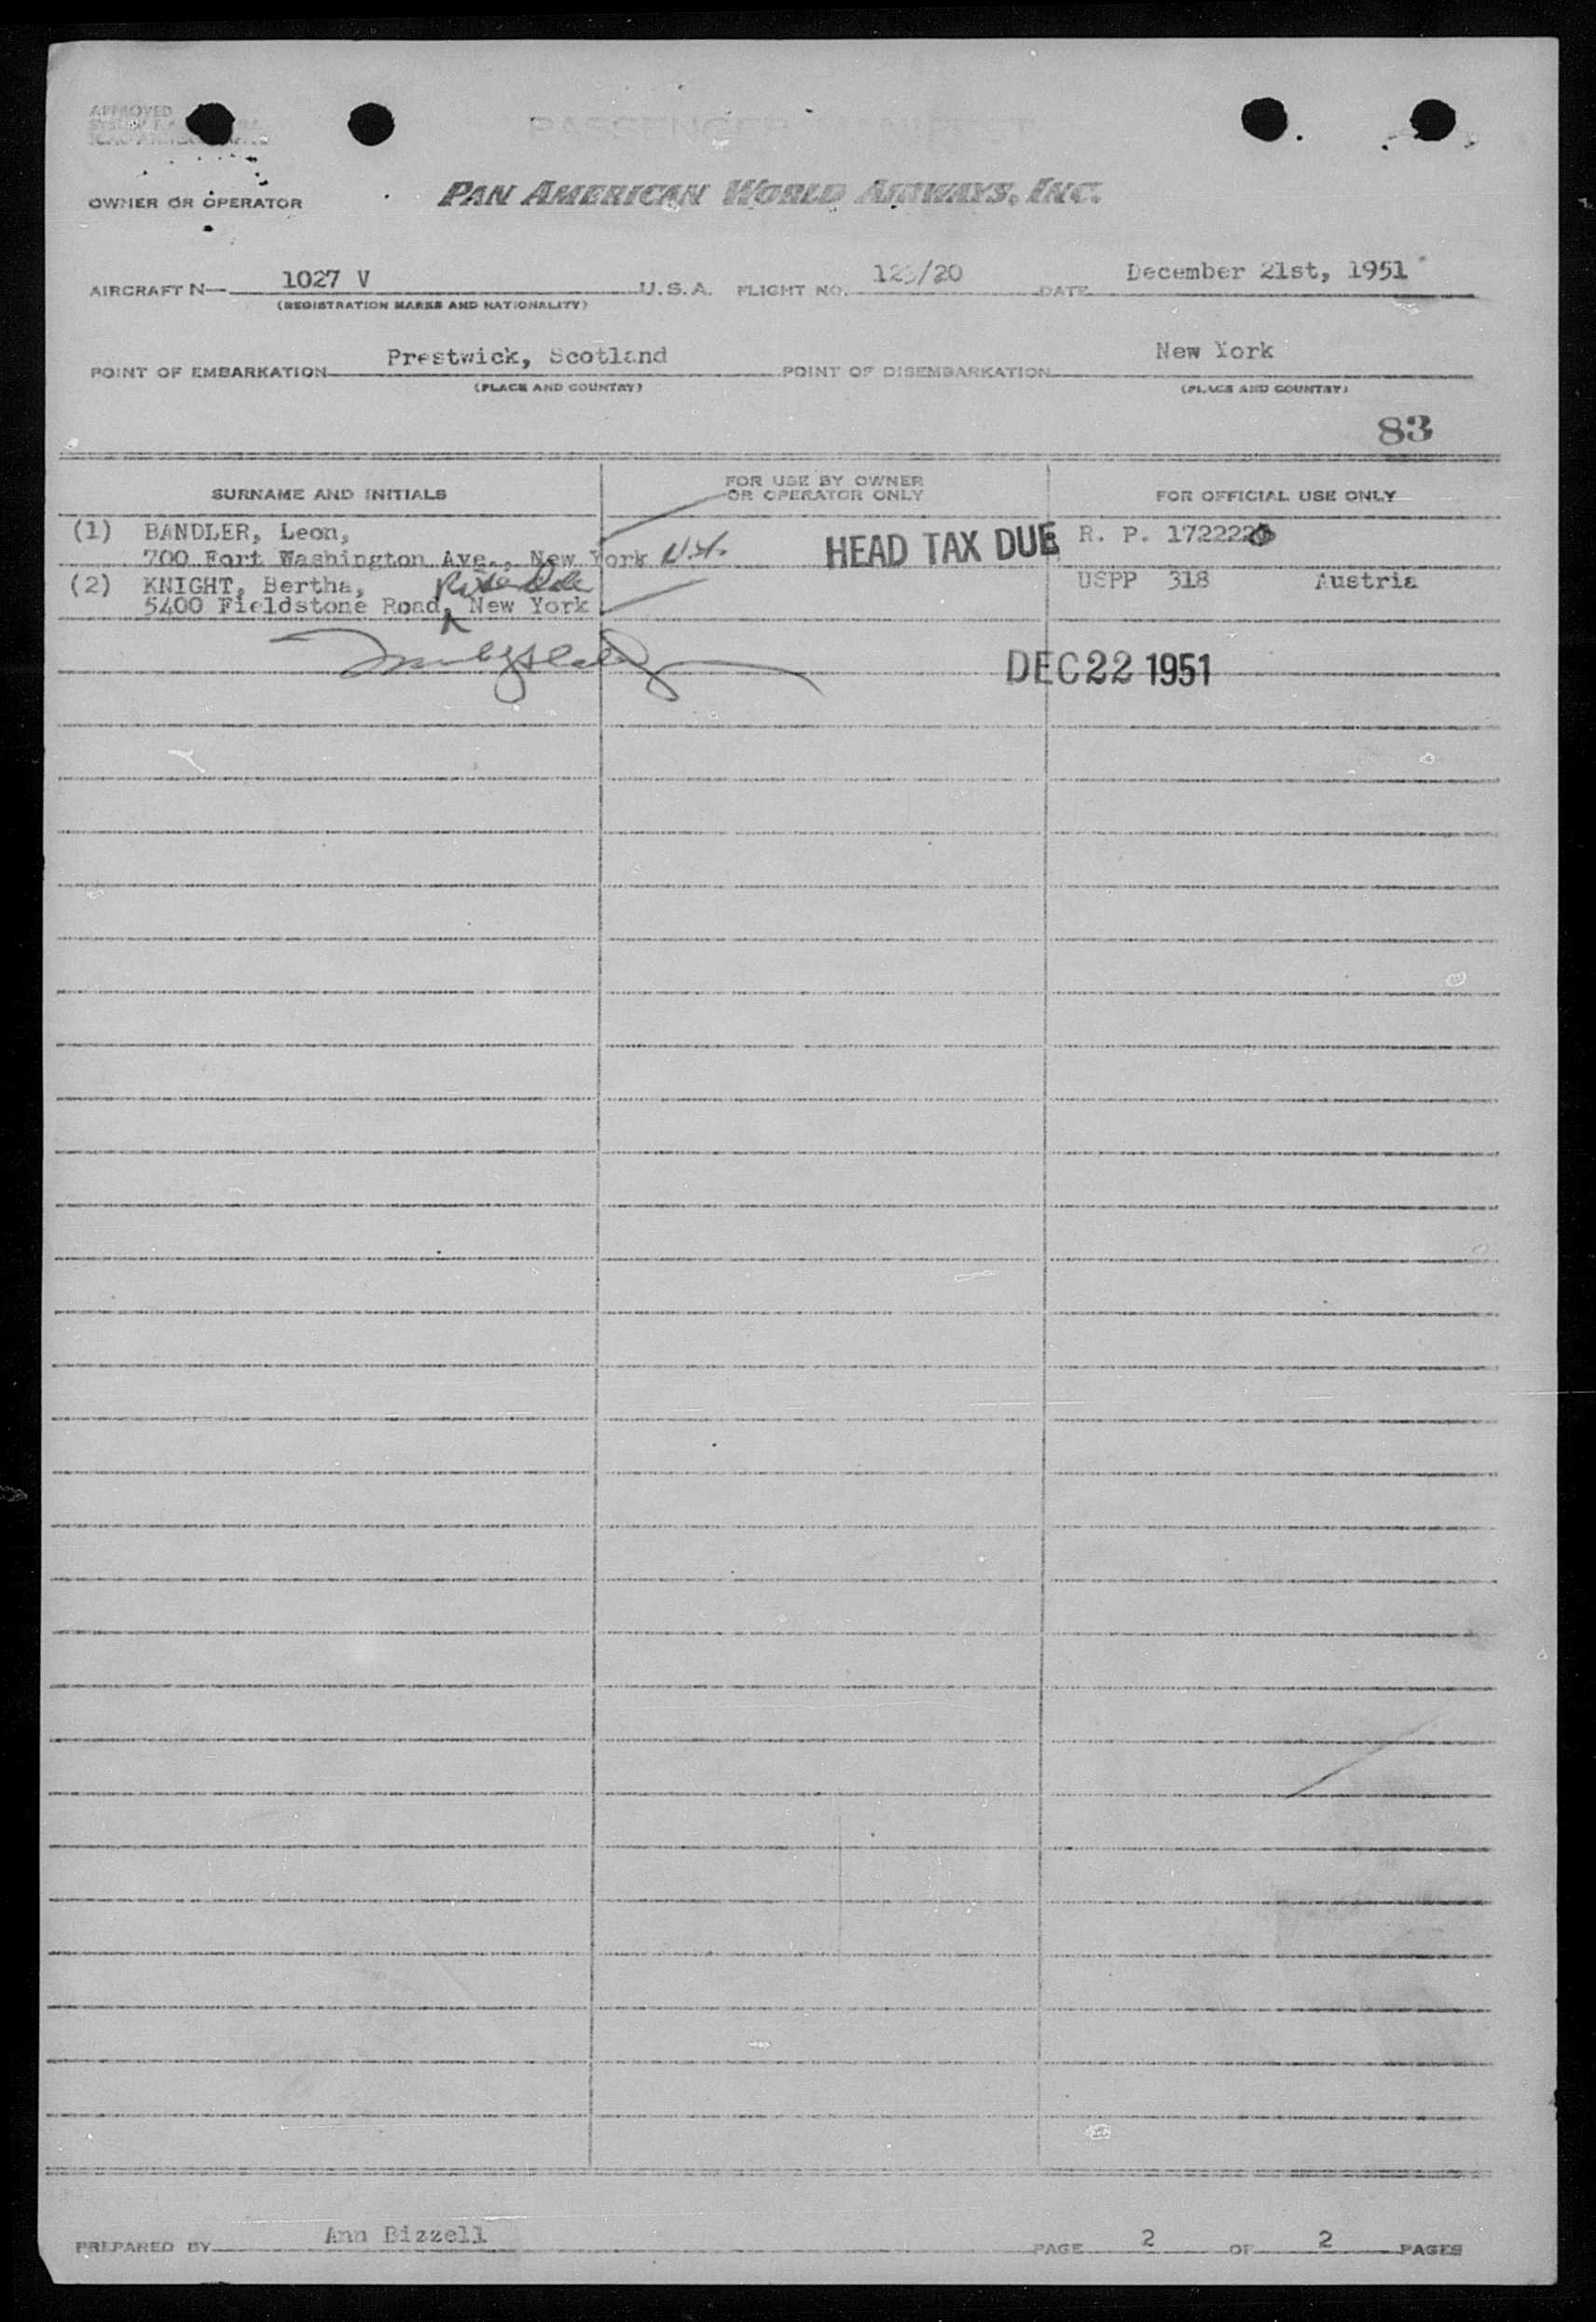 APPROVED
PASSENGER MANIFEST
OWNER OR OPERATOR PAN AMERICAN WORLD AIRWAYS, INC.
AIRCRAFT N— 1027 V U.S.A. FLIGHT NO. /20 DATE December 21st, 1951
(REGISTRATION MARKS AND NATIONALITY)
POINT OF EMBARKATION Prestwick, Scotland POINT OF DISEMBARKATION New York
(PLACE AND COUNTRY) (PLACE AND COUNTRY)
83
SURNAME AND INITIALS FOR USE BY OWNER OR OPERATOR ONLY FOR OFFICIAL USE ONLY
(1) BANDLER, Leon, HEAD TAX DUE R. P.
700 Fort Washington Ave., New York
(2) KNIGHT, Bertha, Riverdale USPP 318 Austria
5400 Fieldstone Road, New York
DEC 22 1951
PREPARED BY Ann Bizzell PAGE 2 OF 2 PAGES